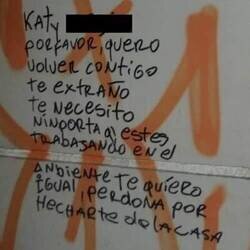 KATY
PORFAVOR, QUERO
VOLVER CONTIGO
TE EXTRAÑO
TE NECESITO
NINPORTA QI ESTES
TRABASANDO EN EL
ANBIENTE TE QUIERO
IGUAL, PERDONA POR
HECHARTE DE LA CASA